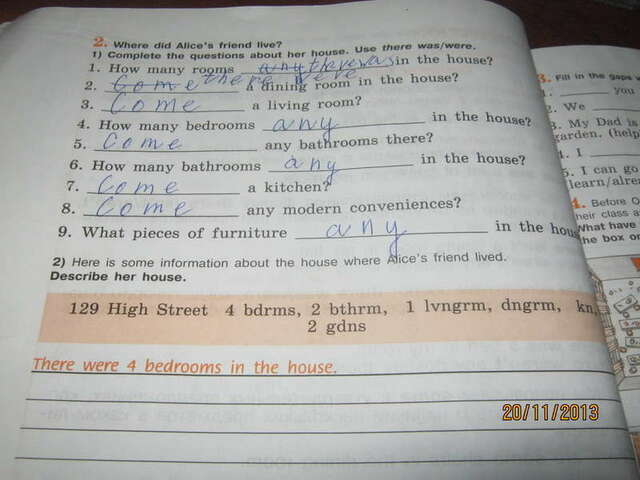 2. Where did Alice's friend live?
1) Complete the questions about her house. Use there was/were.
1. How many rooms any there was in the house?
2. Come there were A dining room in the house?
3. Come a living room?
4. How many bedrooms any in the house?
5. Come any bathrooms there?
6. How many bathrooms any in the house?
7. Come a kitchen?
8. Come any modern conveniences?
9. What pieces of furniture any in the hou
2) Here is some information about the house where Alice's friend lived.
Describe her house.
129 High Street 4 bdrms, 2 bthrm, 1 lvngrm, dngrm, kn,
2 gdns
There were 4 bedrooms in the house.
3. Fill in the gaps
1. you
2. We
3. My Dad is
garden. (help
4. I
5. I can go
learn/alre
4. Before O
heir class a
What have
the box or
20/11/2013